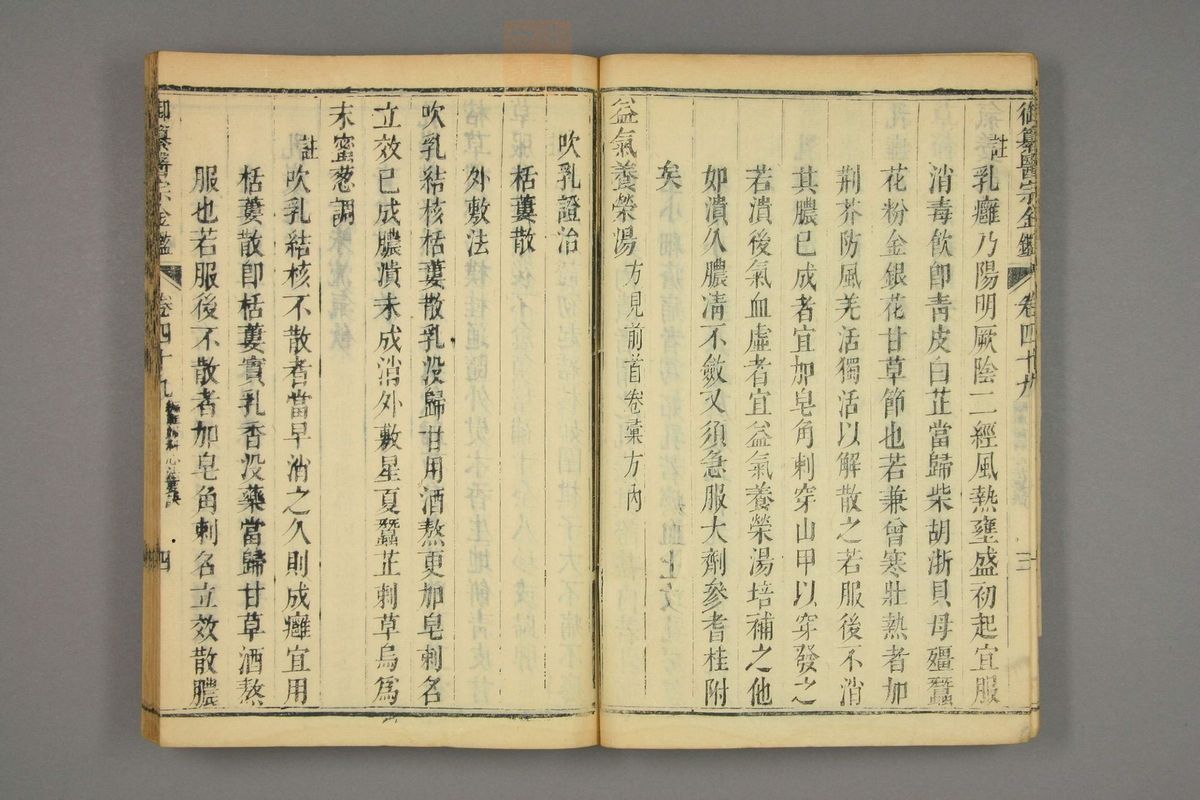 御纂醫宗金鑑 卷四十九 三
註
乳癰乃陽明厥陰二經風熱壅盛初起宜服
消毒飲卽靑皮白芷當歸柴胡浙貝母殭蠶
花粉金銀花甘草節也若兼曾寒壯熱者加
荆芥防風羌活獨活以解散之若服後不消
其膿已成者宜加皂角刺穿山甲以穿發之
若潰後氣血虛者宜益氣養榮湯培補之他
如潰久膿淸不斂又須急服大劑參耆桂附
矣
益氣養榮湯 方見前首卷彙方內
吹乳證治
栝蔞散
外敷法
吹乳結核栝蔞散乳没歸甘用酒熬更加皂刺名
立效已成膿潰未成消外敷星夏蠶芷刺草烏爲
末蜜葱調
註
吹乳結核不散者當早消之久則成癰宜用
栝蔞散卽栝蔞實乳香没藥當歸甘草酒熬
服也若服後不散者加皂角刺名立效散膿
御纂醫宗金鑑 卷四十九 四